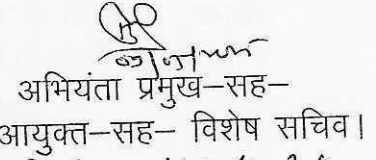 अभियंता प्रमुख–सह–
आयुक्त–सह– विशेष सचिव।